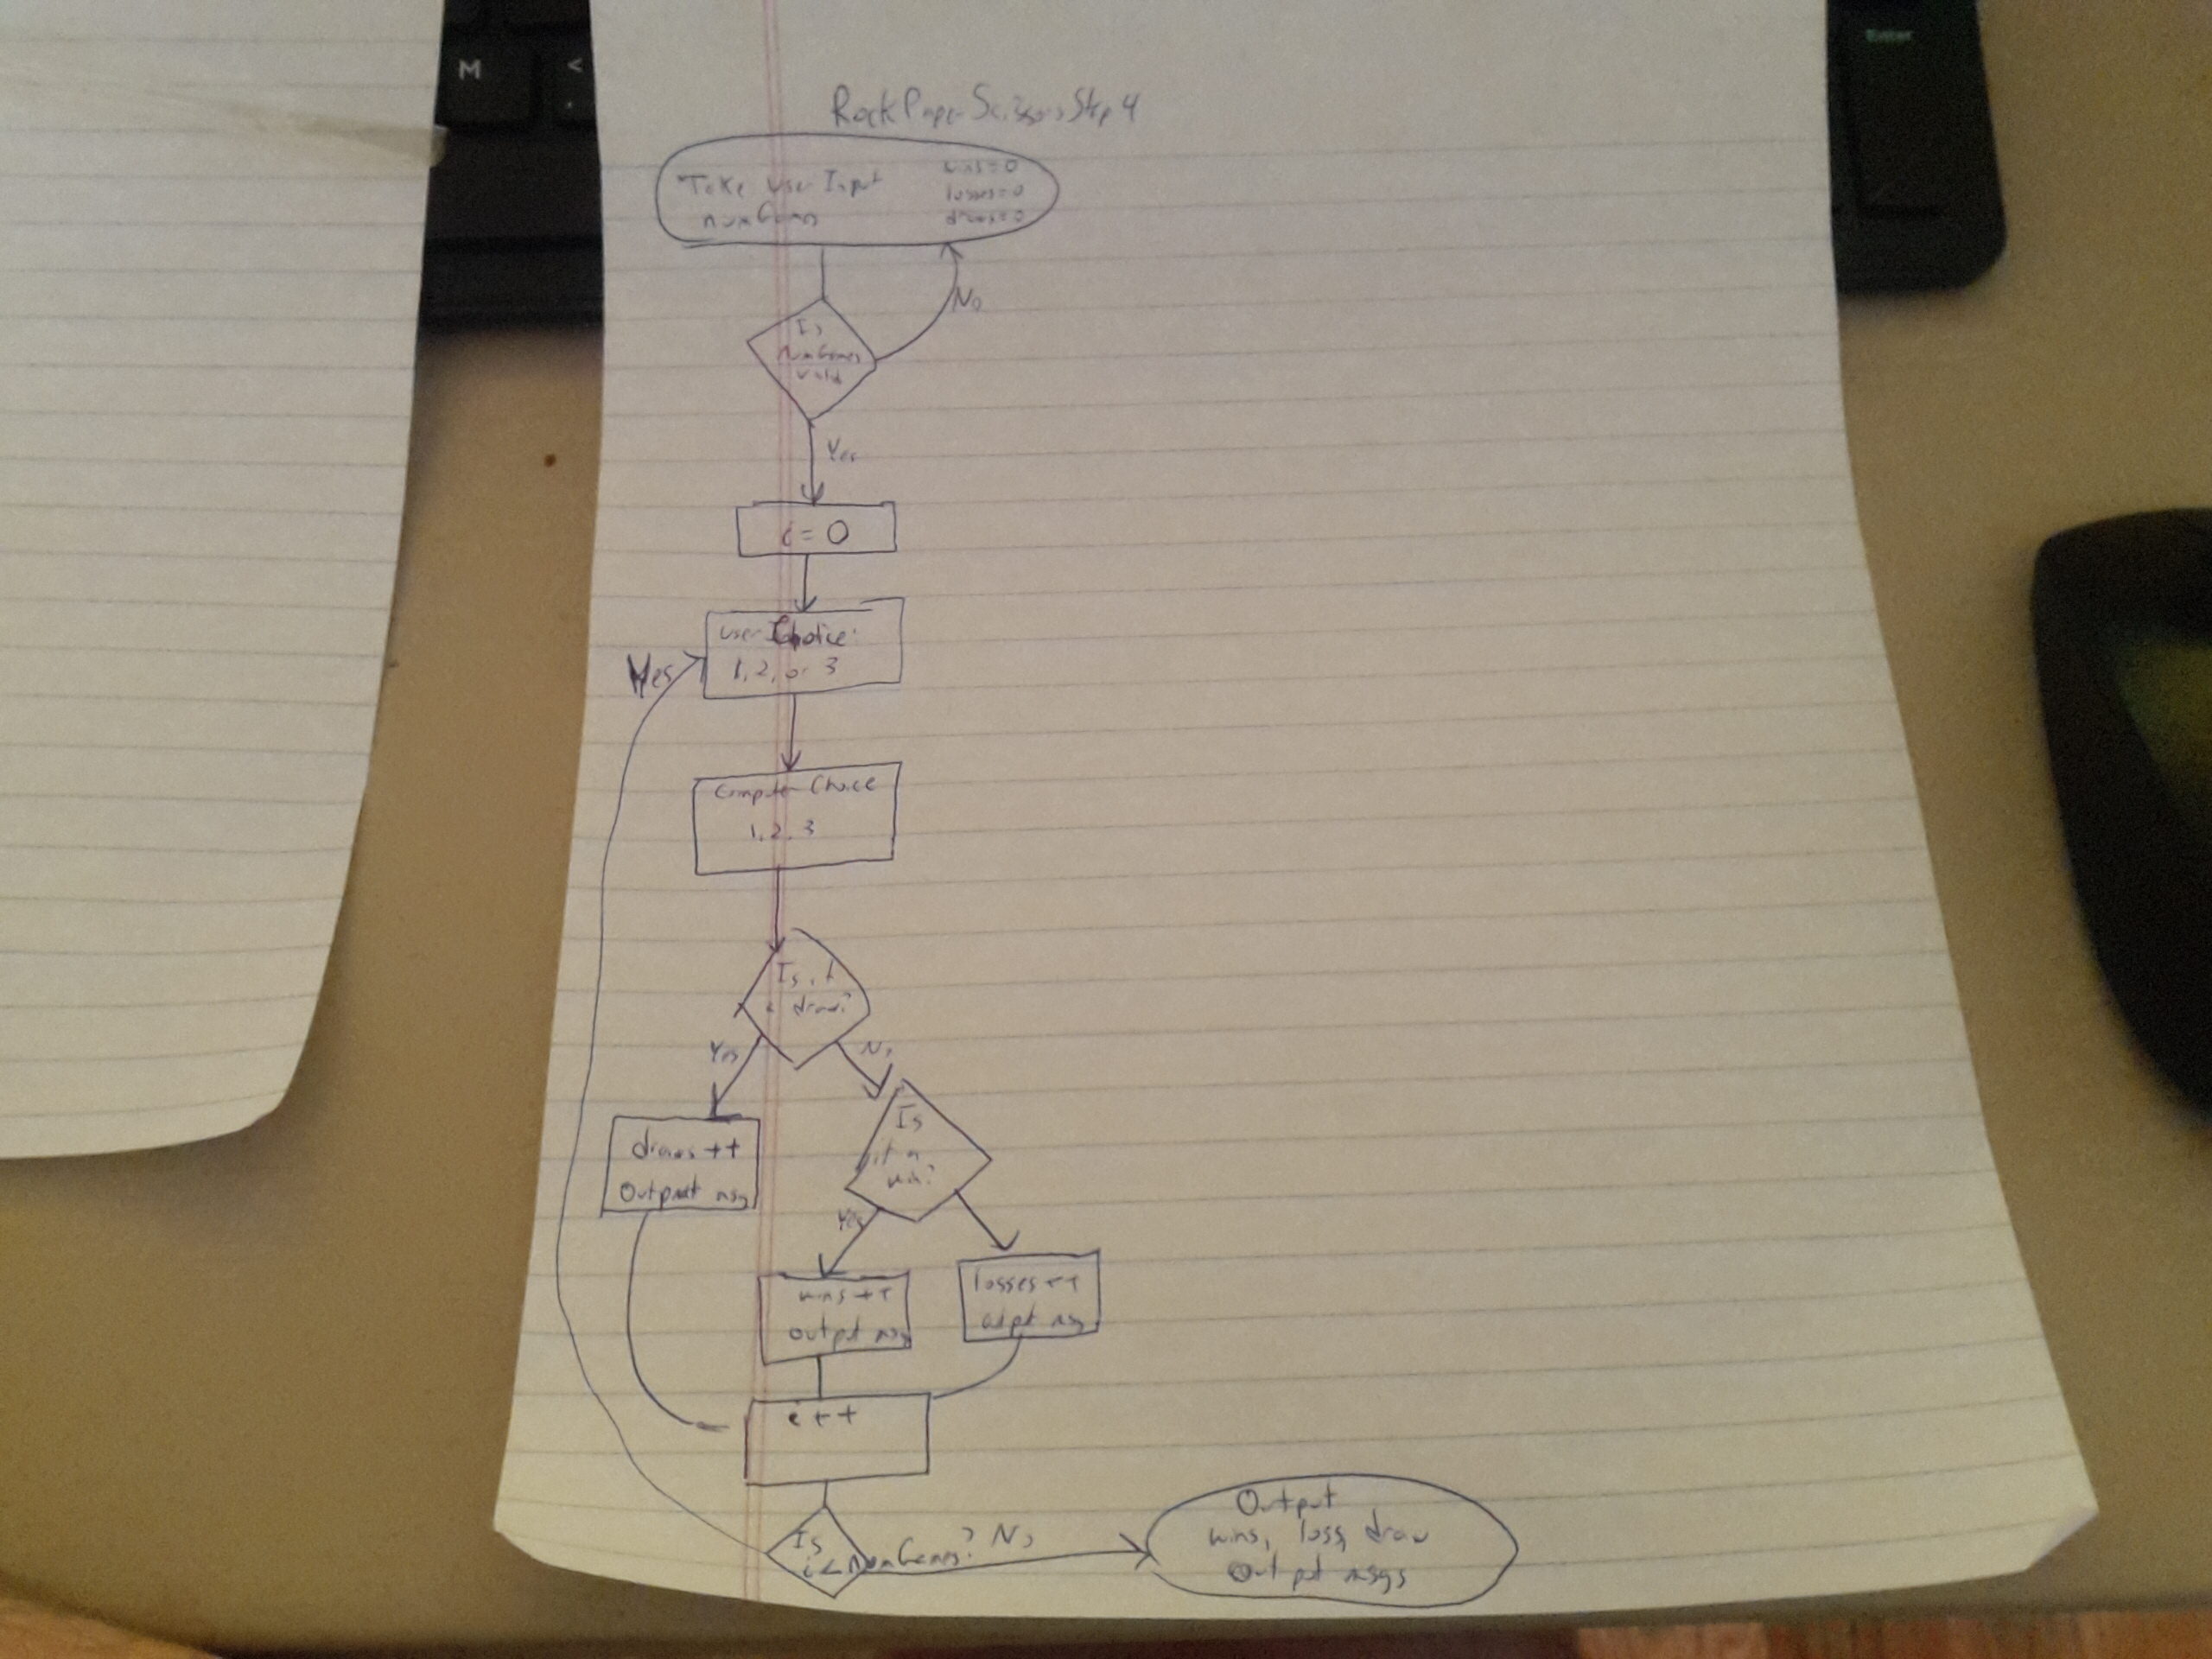 M
<
,
Enter
RockPaperScissorsStep4
Take user Input
numGames
wins=0
losses=0
draws=0
Is
numGames
valid
No
Yes
i = 0
userChoice:
1, 2, or 3
Yes
Computer Choice
1, 2, 3
Is it
a draw?
Yes
No
draws ++
Output msg
Is
it a
win?
Yes
wins ++
output msg
losses ++
output msg
i ++
Is
i < numGames?
No
Output
wins, loss, draw
Output msgs